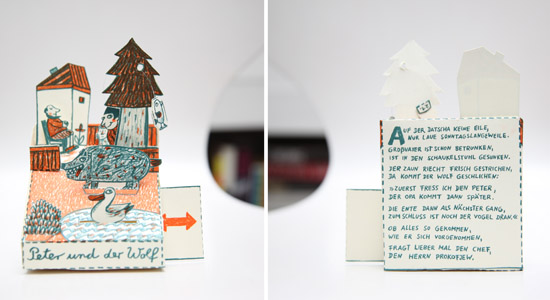 Peter und der Wolf
AUF DER DATSCHA KEINE EILE,
NUR LAUE SONNTAGSLANGEWEILE.
GROßVATER IST SCHON BETRUNKEN,
IST IN DEN SCHAUKELSTUHL GESUNKEN.
DER ZAUN RIECHT FRISCH GESTRICHEN,
DA KOMMT DER WOLF GESCHLICHEN:
»ZUERST FRESS ICH DEN PETER,
DER OPA KOMMT DANN SPÄTER.
DIE ENTE DANN ALS NÄCHSTER GANG,
ZUM SCHLUSS IST NOCH DER VOGEL DRAN.«
OB ALLES SO GEKOMMEN,
WIE ER SICH VORGENOMMEN,
FRAGT LIEBER MAL DEN CHEF,
DEN HERRN PROKOFJEW.